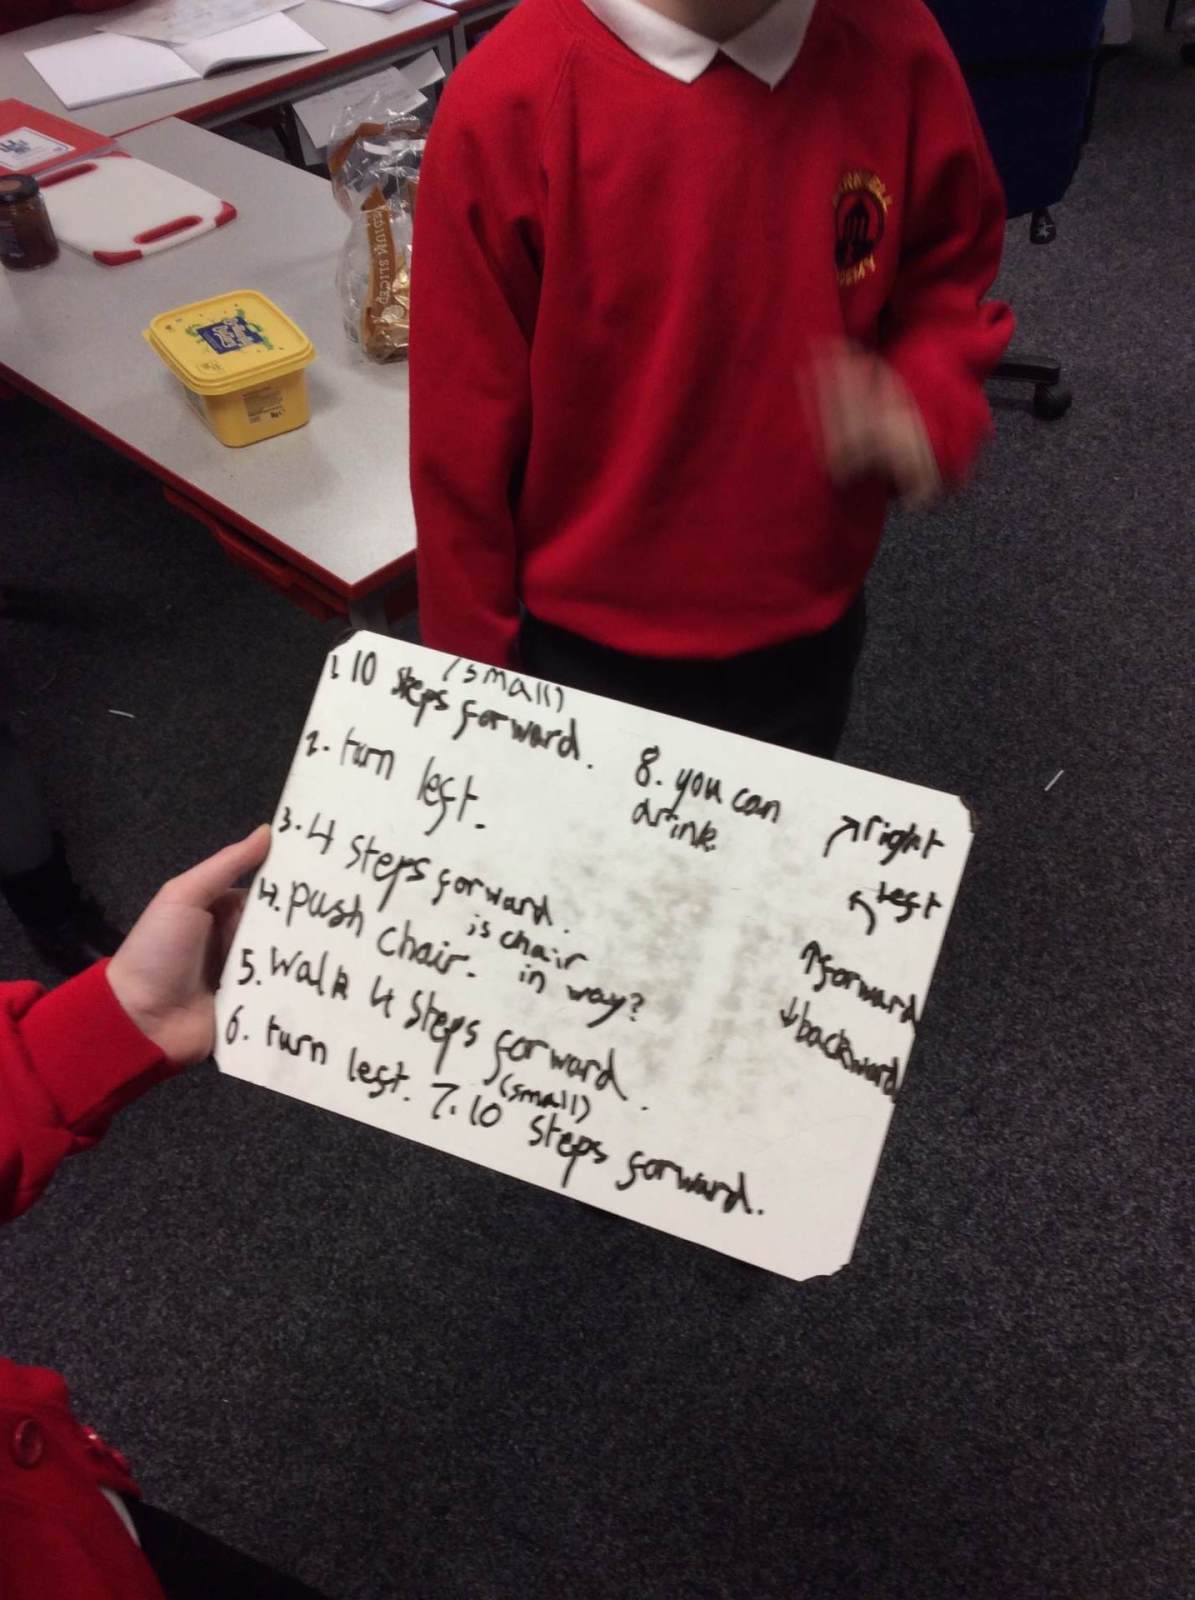 MEDIUM SLICED
1. 10 steps forward.
(small)
2. turn left.
3. 4 steps forward.
4. push chair.
is chair
in way?
5. Walk 4 steps forward.
6. turn left. 7. 10 steps forward.
(small)
8. you can
drink.
↗ right
↖ left
↑ forward
↓ backward